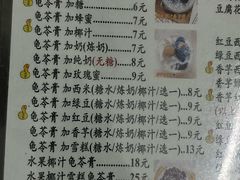 龟苓膏 加糖 6元
龟苓膏 加蜂蜜 7元
龟苓膏 加椰汁 7元
龟苓膏 加奶(炼奶) 7元
龟苓膏 加纯奶(无糖) 7元
龟苓膏 加玫瑰蜜 9元
龟苓膏 加西米(糖水/炼奶/椰汁/选一) 8元
龟苓膏 加绿豆(糖水/炼奶/椰汁/选一) 8元
龟苓膏 加红豆(糖水/炼奶/椰汁/选一) 9元
龟苓膏 加香芋(糖水/炼奶/椰汁/选一) 9元
龟苓膏 加雪糕(糖水/炼奶/椰汁/选一) 13元
水果椰汁龟苓膏 18元
水果椰汁雪糕龟苓膏 25元
豆腐花
红豆
香芋